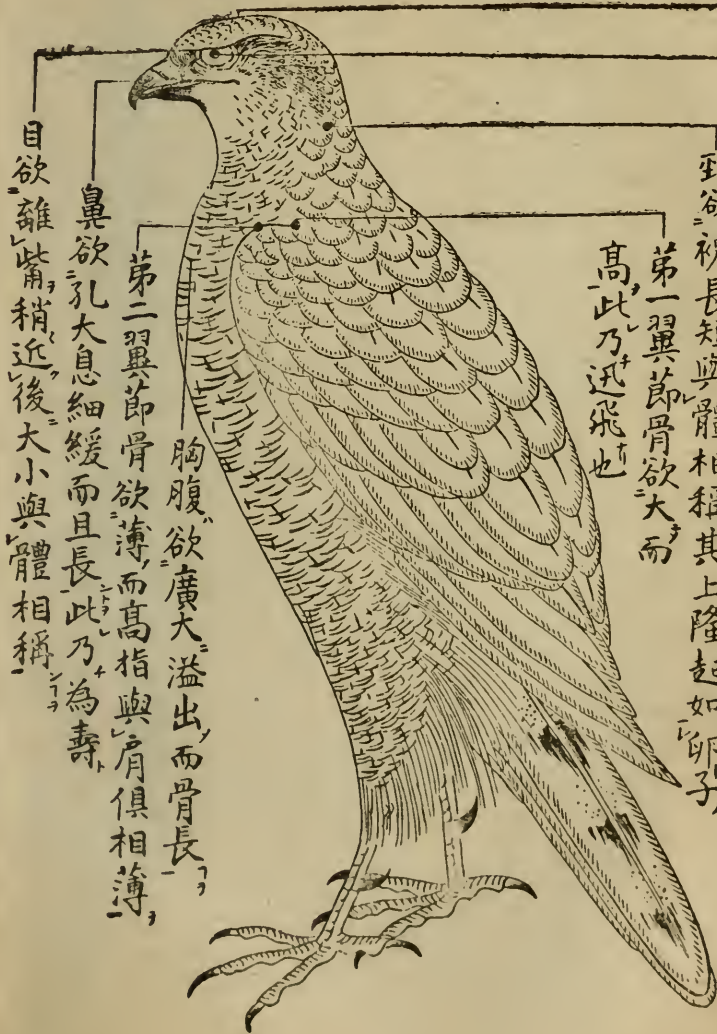 長短與體相稱其上隆起如卵子
第一翼節骨欲大而
高此乃迅飛也
胸腹欲廣大溢出而骨長
第二翼節骨欲薄而高指與肩俱相薄
鼻欲孔大息細緩而且長此乃為壽
目欲離觜稍近後大小與體相稱